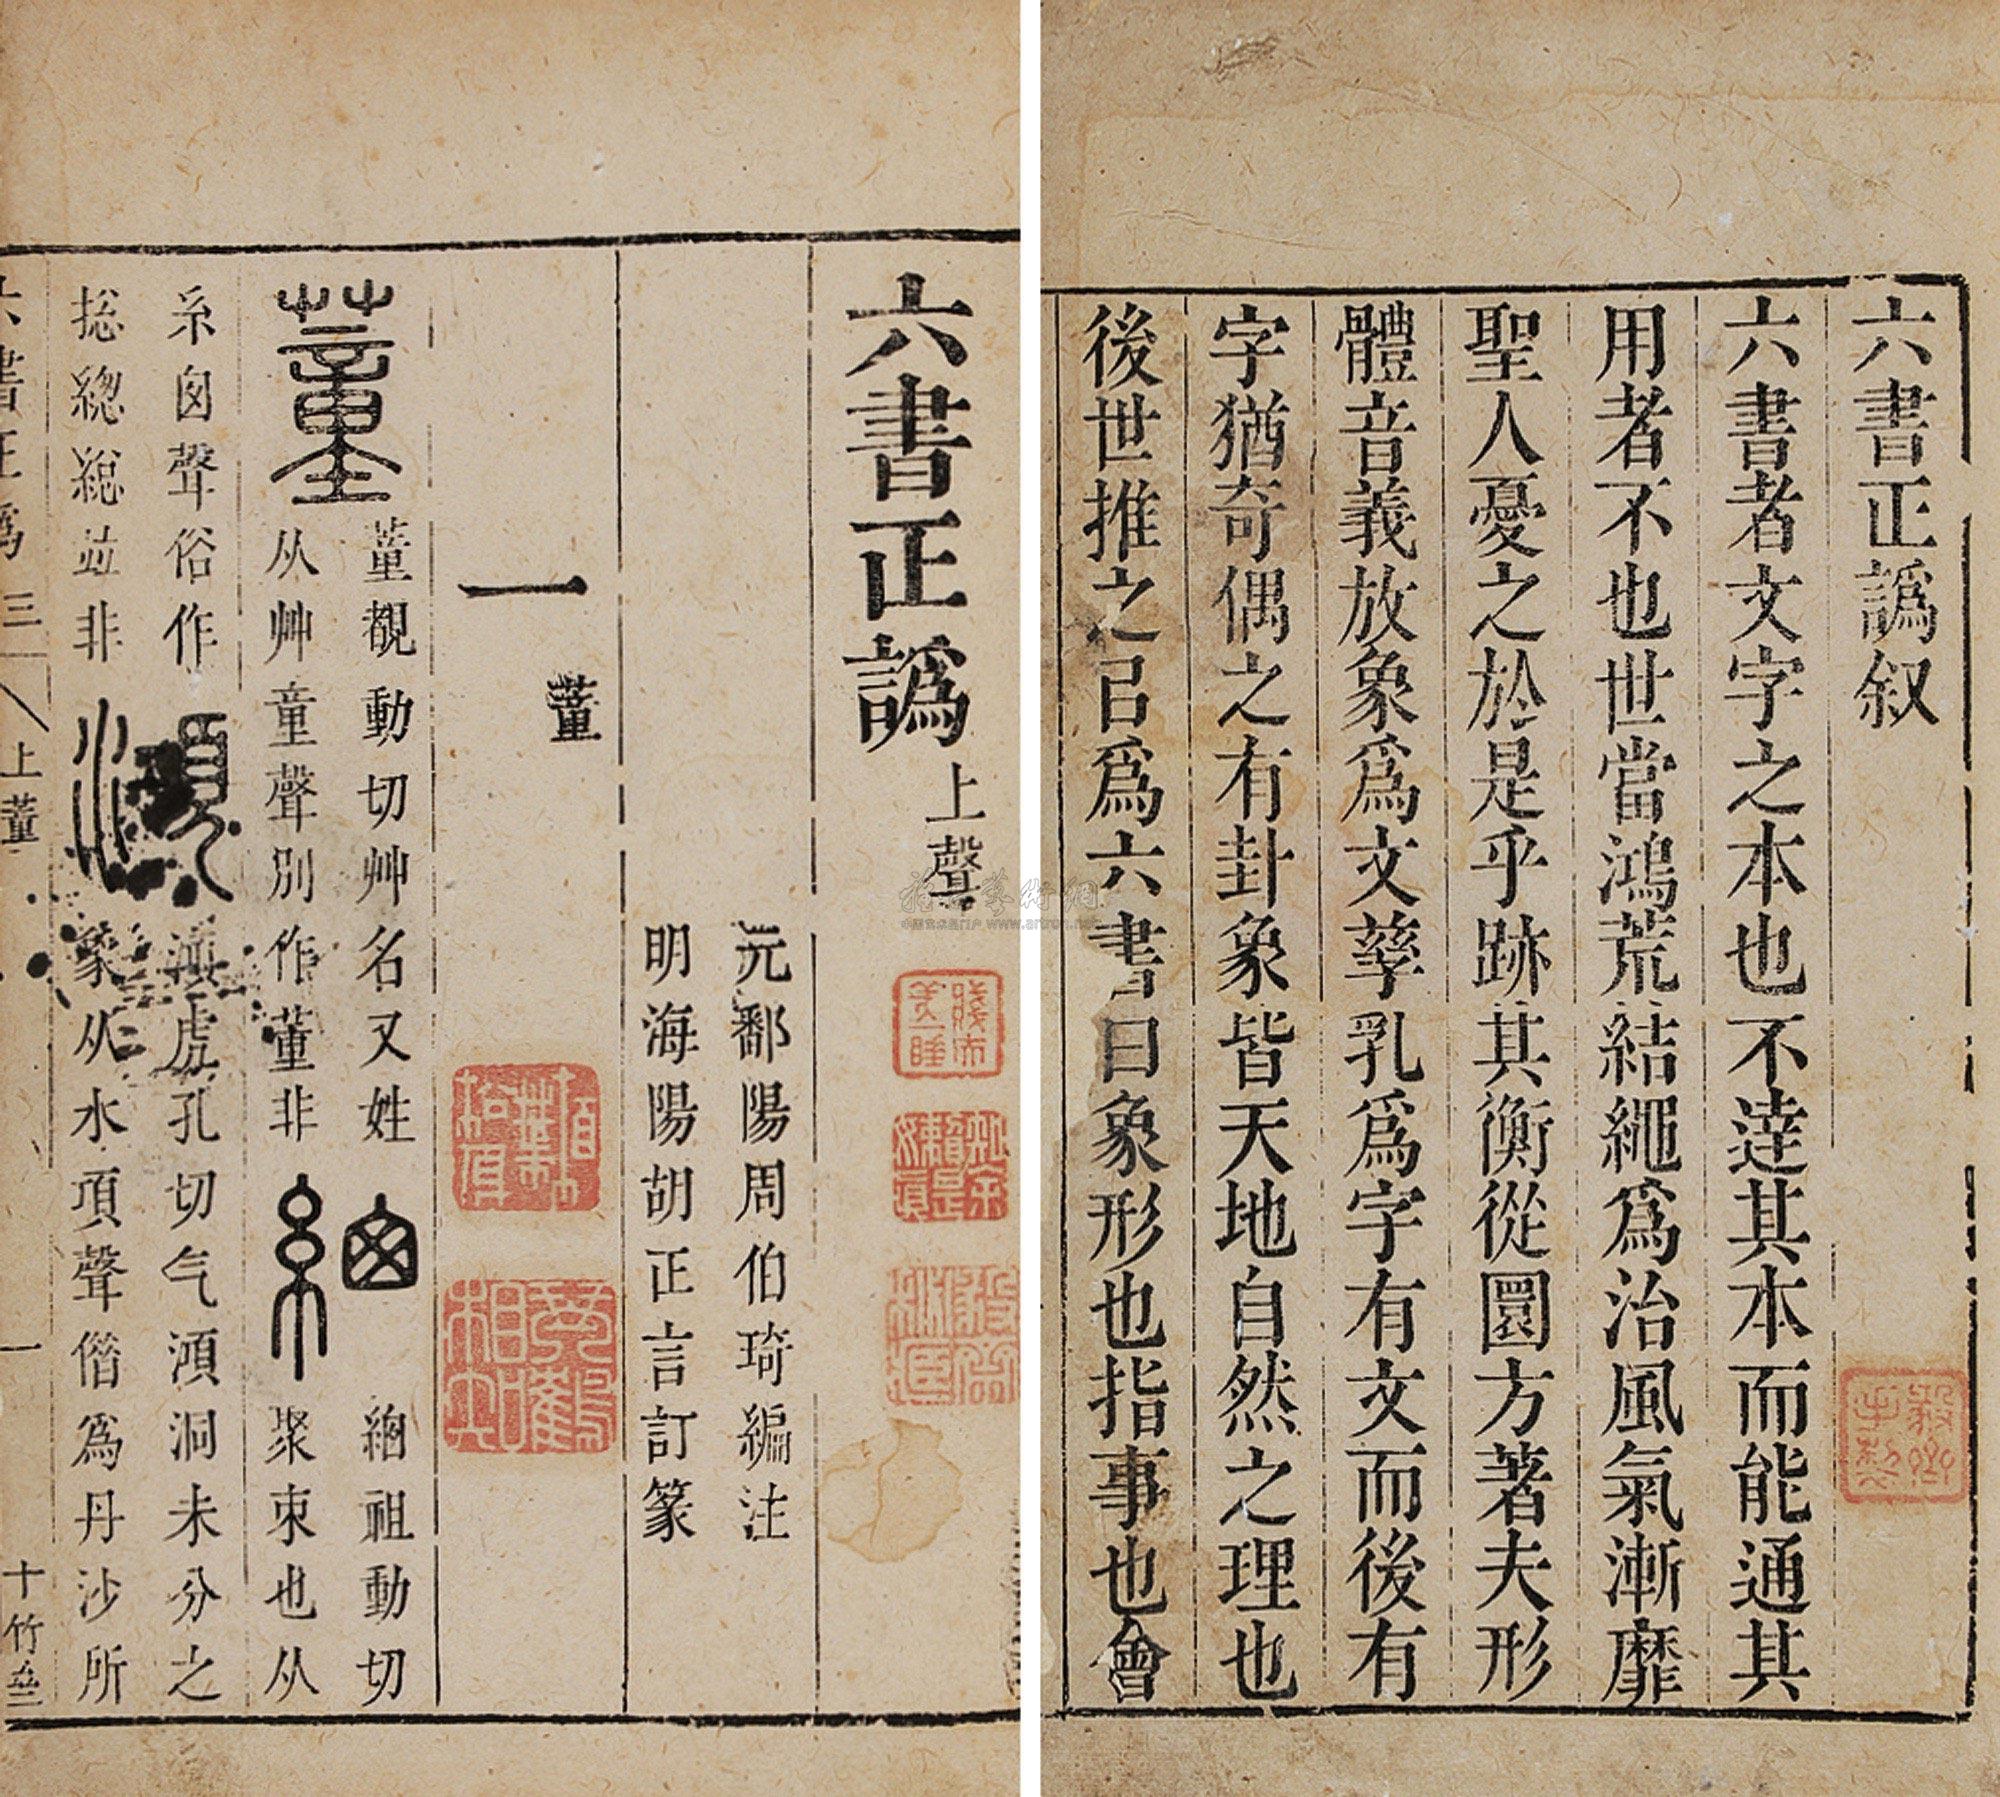 六書正譌叙
六書者文字之本也不達其本而能通其
用者不也世當鴻荒結繩爲治風氣漸靡
聖人憂之於是乎跡其衡從圜方著夫形
體音義放象爲文孳乳爲字有文而後有
字猶奇偶之有卦象皆天地自然之理也
後世推之㠯爲六書曰象形也指事也會
六書正譌上聲
元鄱陽周伯琦編注
明海陽胡正言訂篆
一董
董
董覩動切艸名又姓
从艸童聲別作蕫非
緫祖動切
聚束也从
糸囪聲俗作
捴緫綂竝非
澒
澒虎孔切气澒洞未分之
象从水項聲借爲丹沙所
六書正譌 三 上董 一 十竹齋
www.artron.net